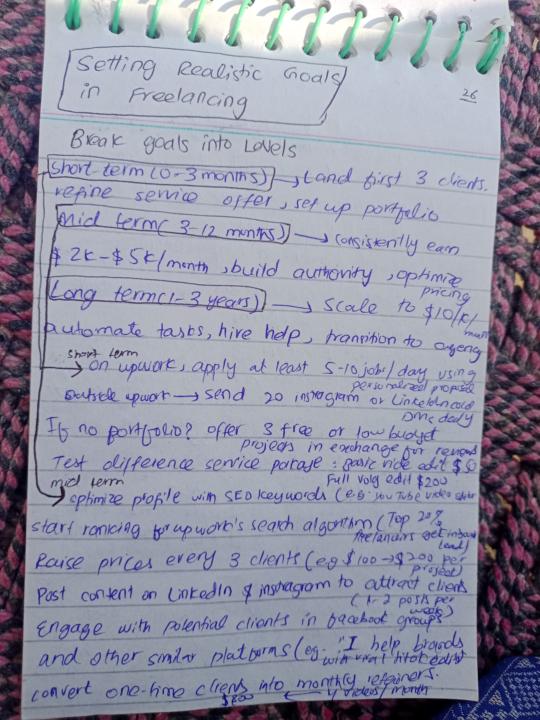 Setting Realistic Goals
in Freelancing
26
Break goals into Levels
Short term (0-3 months) → Land first 3 clients.
refine service offer, set up portfolio
Mid term (3-12 months) → consistently earn
$2k-$5k/month, build authority, optimize
pricing
Long term (1-3 years) → scale to $10/k/
automate tasks, hire help, transition to agency
short term
→ on upwork, apply at least 5-10 jobs/day using
personalized proposal
outside upwork → send 20 instagram or LinkeIdn cold
DMs daily
If no portfolio? offer 3 free or low budget
projects in exchange for reviews
Test difference service : Basic $50
Full edit $200
mid term
optimize profile with SEO keywords (e.g. YouTube video
start ranking for upwork's search algorithm (Top 20%
get inbound
lead)
Raise prices every 3 clients (e.g $100→$200 per
project)
Post content on LinkedIn & instagram to attract clients
(1-2 posts per
week)
Engage with potential clients in facebook groups
and other similar platforms (eg. "I help brands
with viral
convert one-time clients into monthly retainers.
$800 ← 4 videos/month